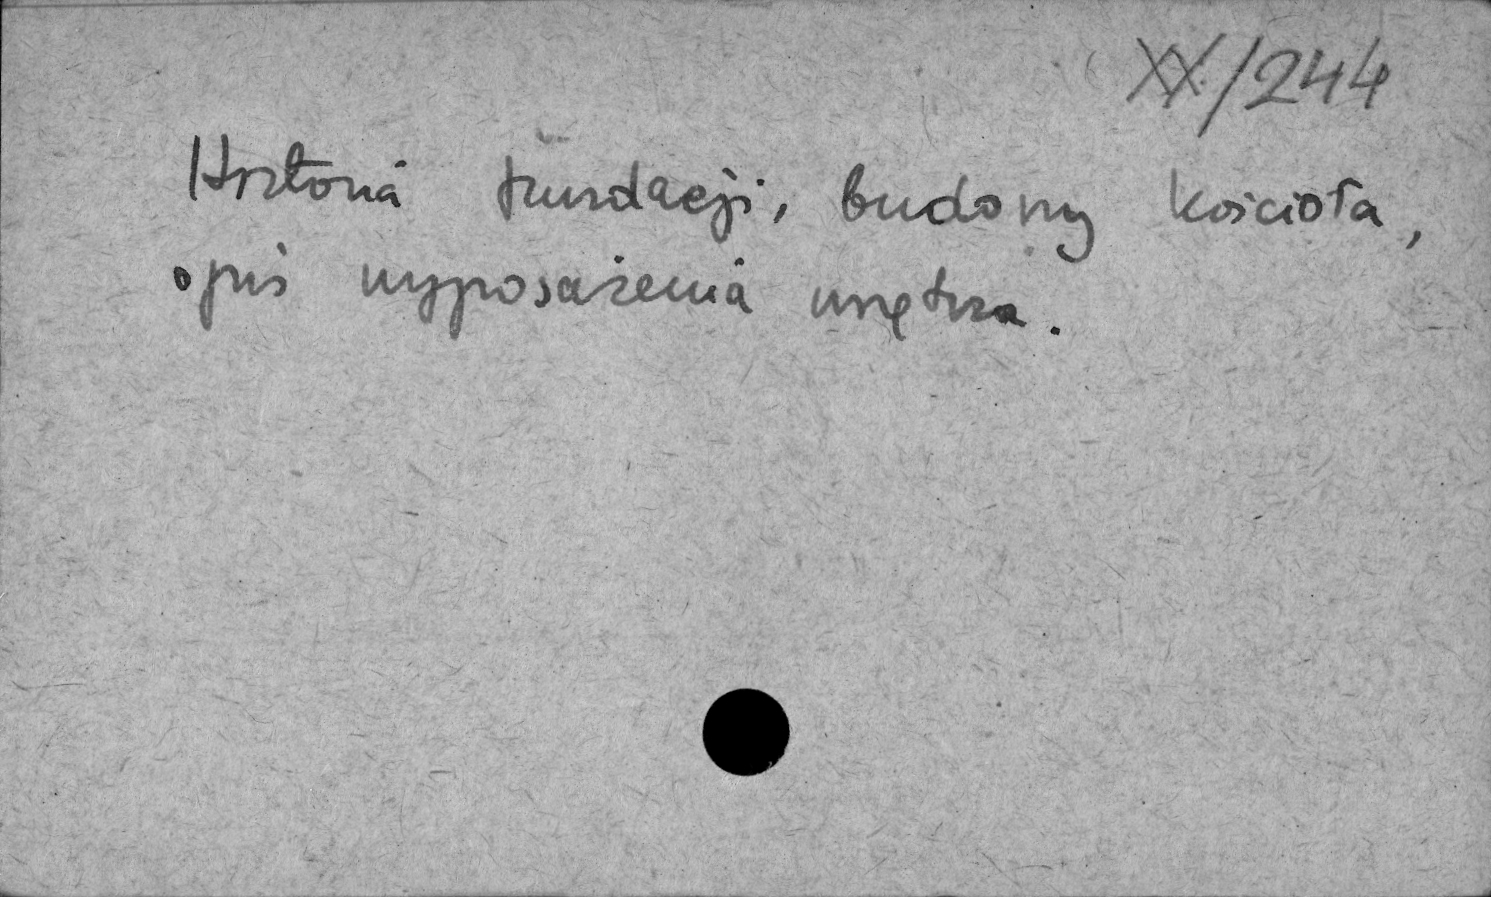 XX/244
Historia fundacji, budowy kościoła,
opis wyposażenia wnętrza.